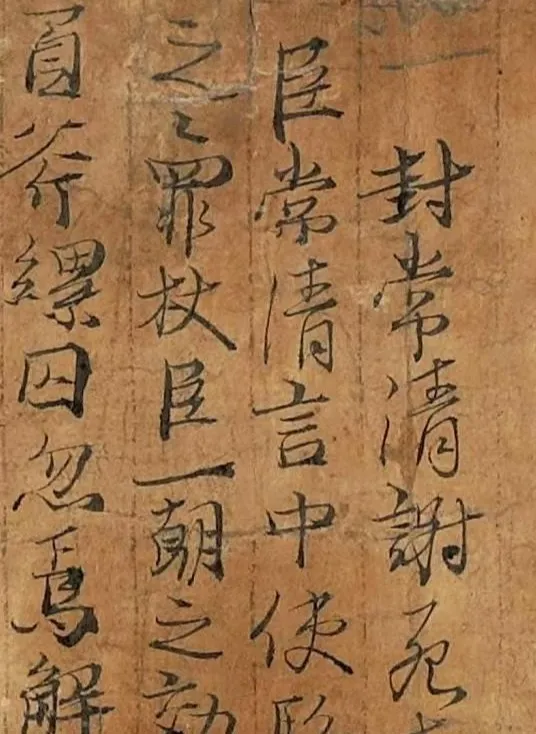 封常清謝死
臣常清言中使
之〻罪杖臣一朝之効
負斧縲囚忽焉解